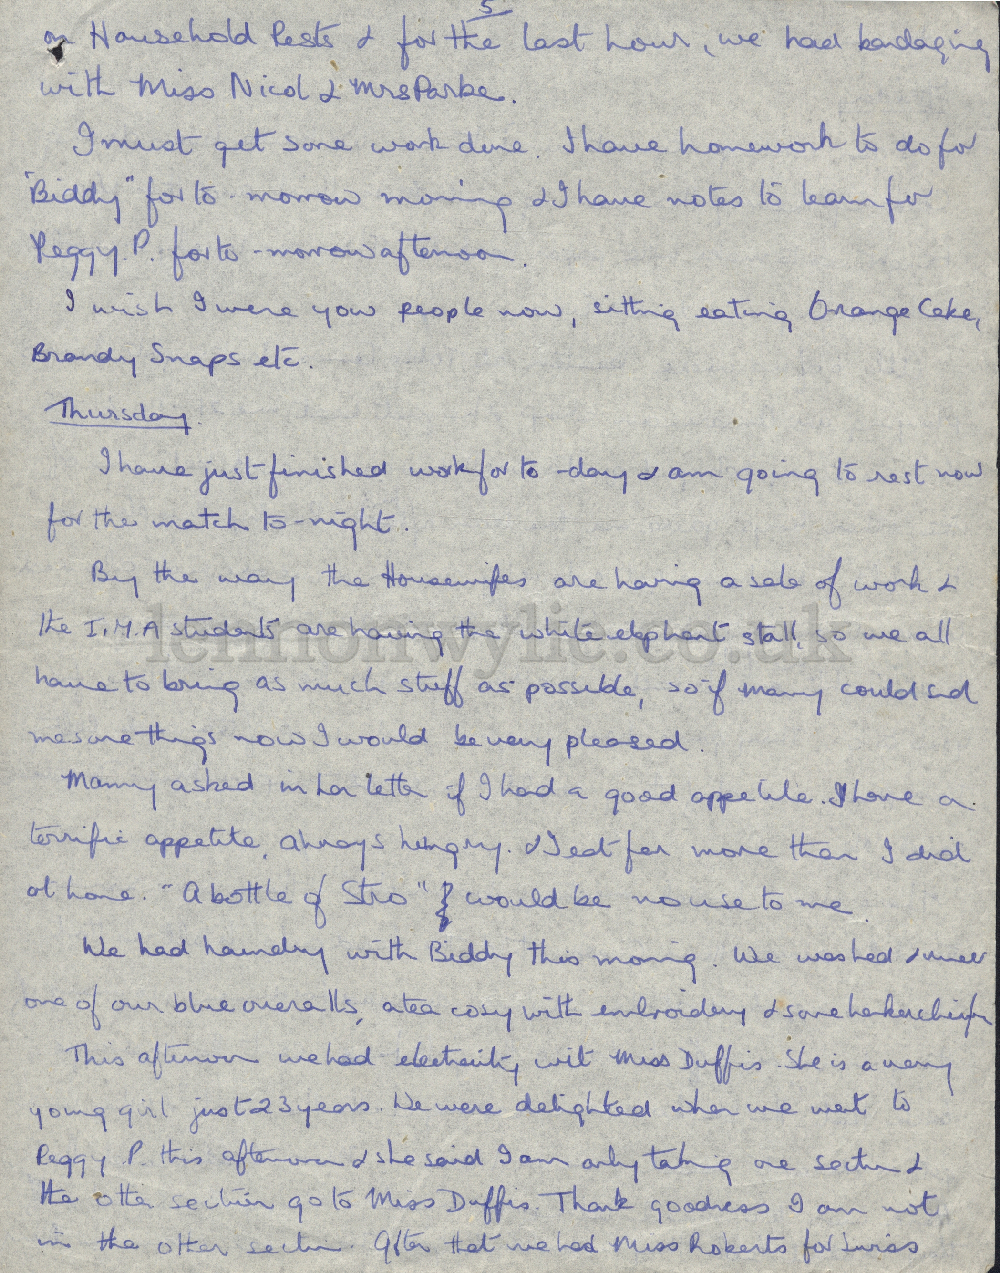 5
on Household Pests & for the last hour, we had bandaging
with Miss Nicol & Mrs Parke.
I must get some work done. I have homework to do for
"Biddy" for to-morrow morning & I have notes to learn for
Peggy P. for to-morrow afternoon.
I wish I were you people now, sitting eating Orange Cake,
Brandy Snaps etc.
Thursday.
I have just finished work for to-day & am going to rest now
for the match to-night.
By the way the Housewifes are having a sale of work &
the I.M.A students are having the white elephant stall, so we all
have to bring as much stuff as possible, so if Mammy could send
me some things now I would be very pleased.
Mammy asked in her letter if I had a good appetite. I have a
terrific appetite, always hungry. & I eat far more than I did
at home. "A bottle of Stro" would be no use to me.
We had laundry with Biddy this morning. We washed &
one of our blue overalls, a tea cosy with embroidery & some hankerchiefs
This afternoon we had electricity with Miss Duffis. She is a very
young girl just 23 years. We were delighted when we went to
Peggy P. this afternoon & she said I am only taking one section &
the other section go to Miss Duffis. Thank goodness I am not
in the other section. After that we had Miss Roberts for
lennonwylie.co.uk